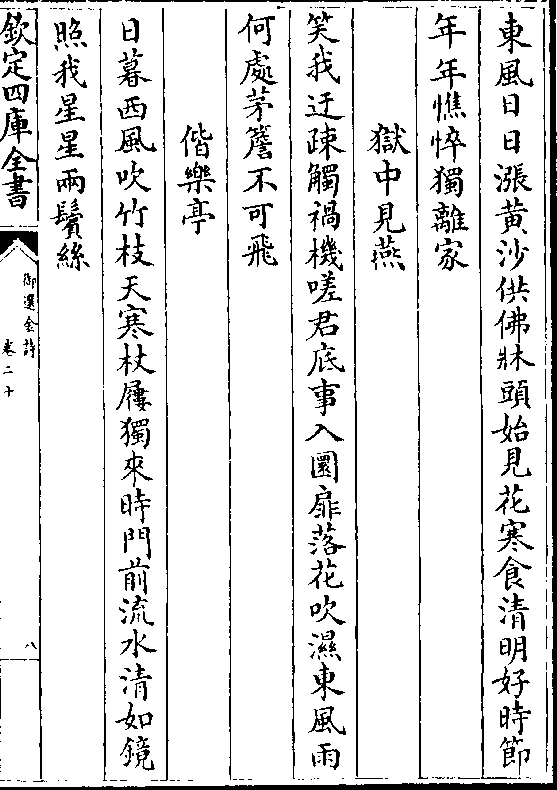 東風日日漲黄沙供佛牀頭始見花寒食清明好時節
年年憔悴獨離家
獄中見燕
笑我迂疎觸禍機嗟君底事入圜扉落花吹濕東風雨
何處茅簷不可飛
偕樂亭
日暮西風吹竹枝天寒杖屨獨來時門前流水清如鏡
照我星星兩鬢絲
欽定四庫全書
御選金詩
卷二十
八